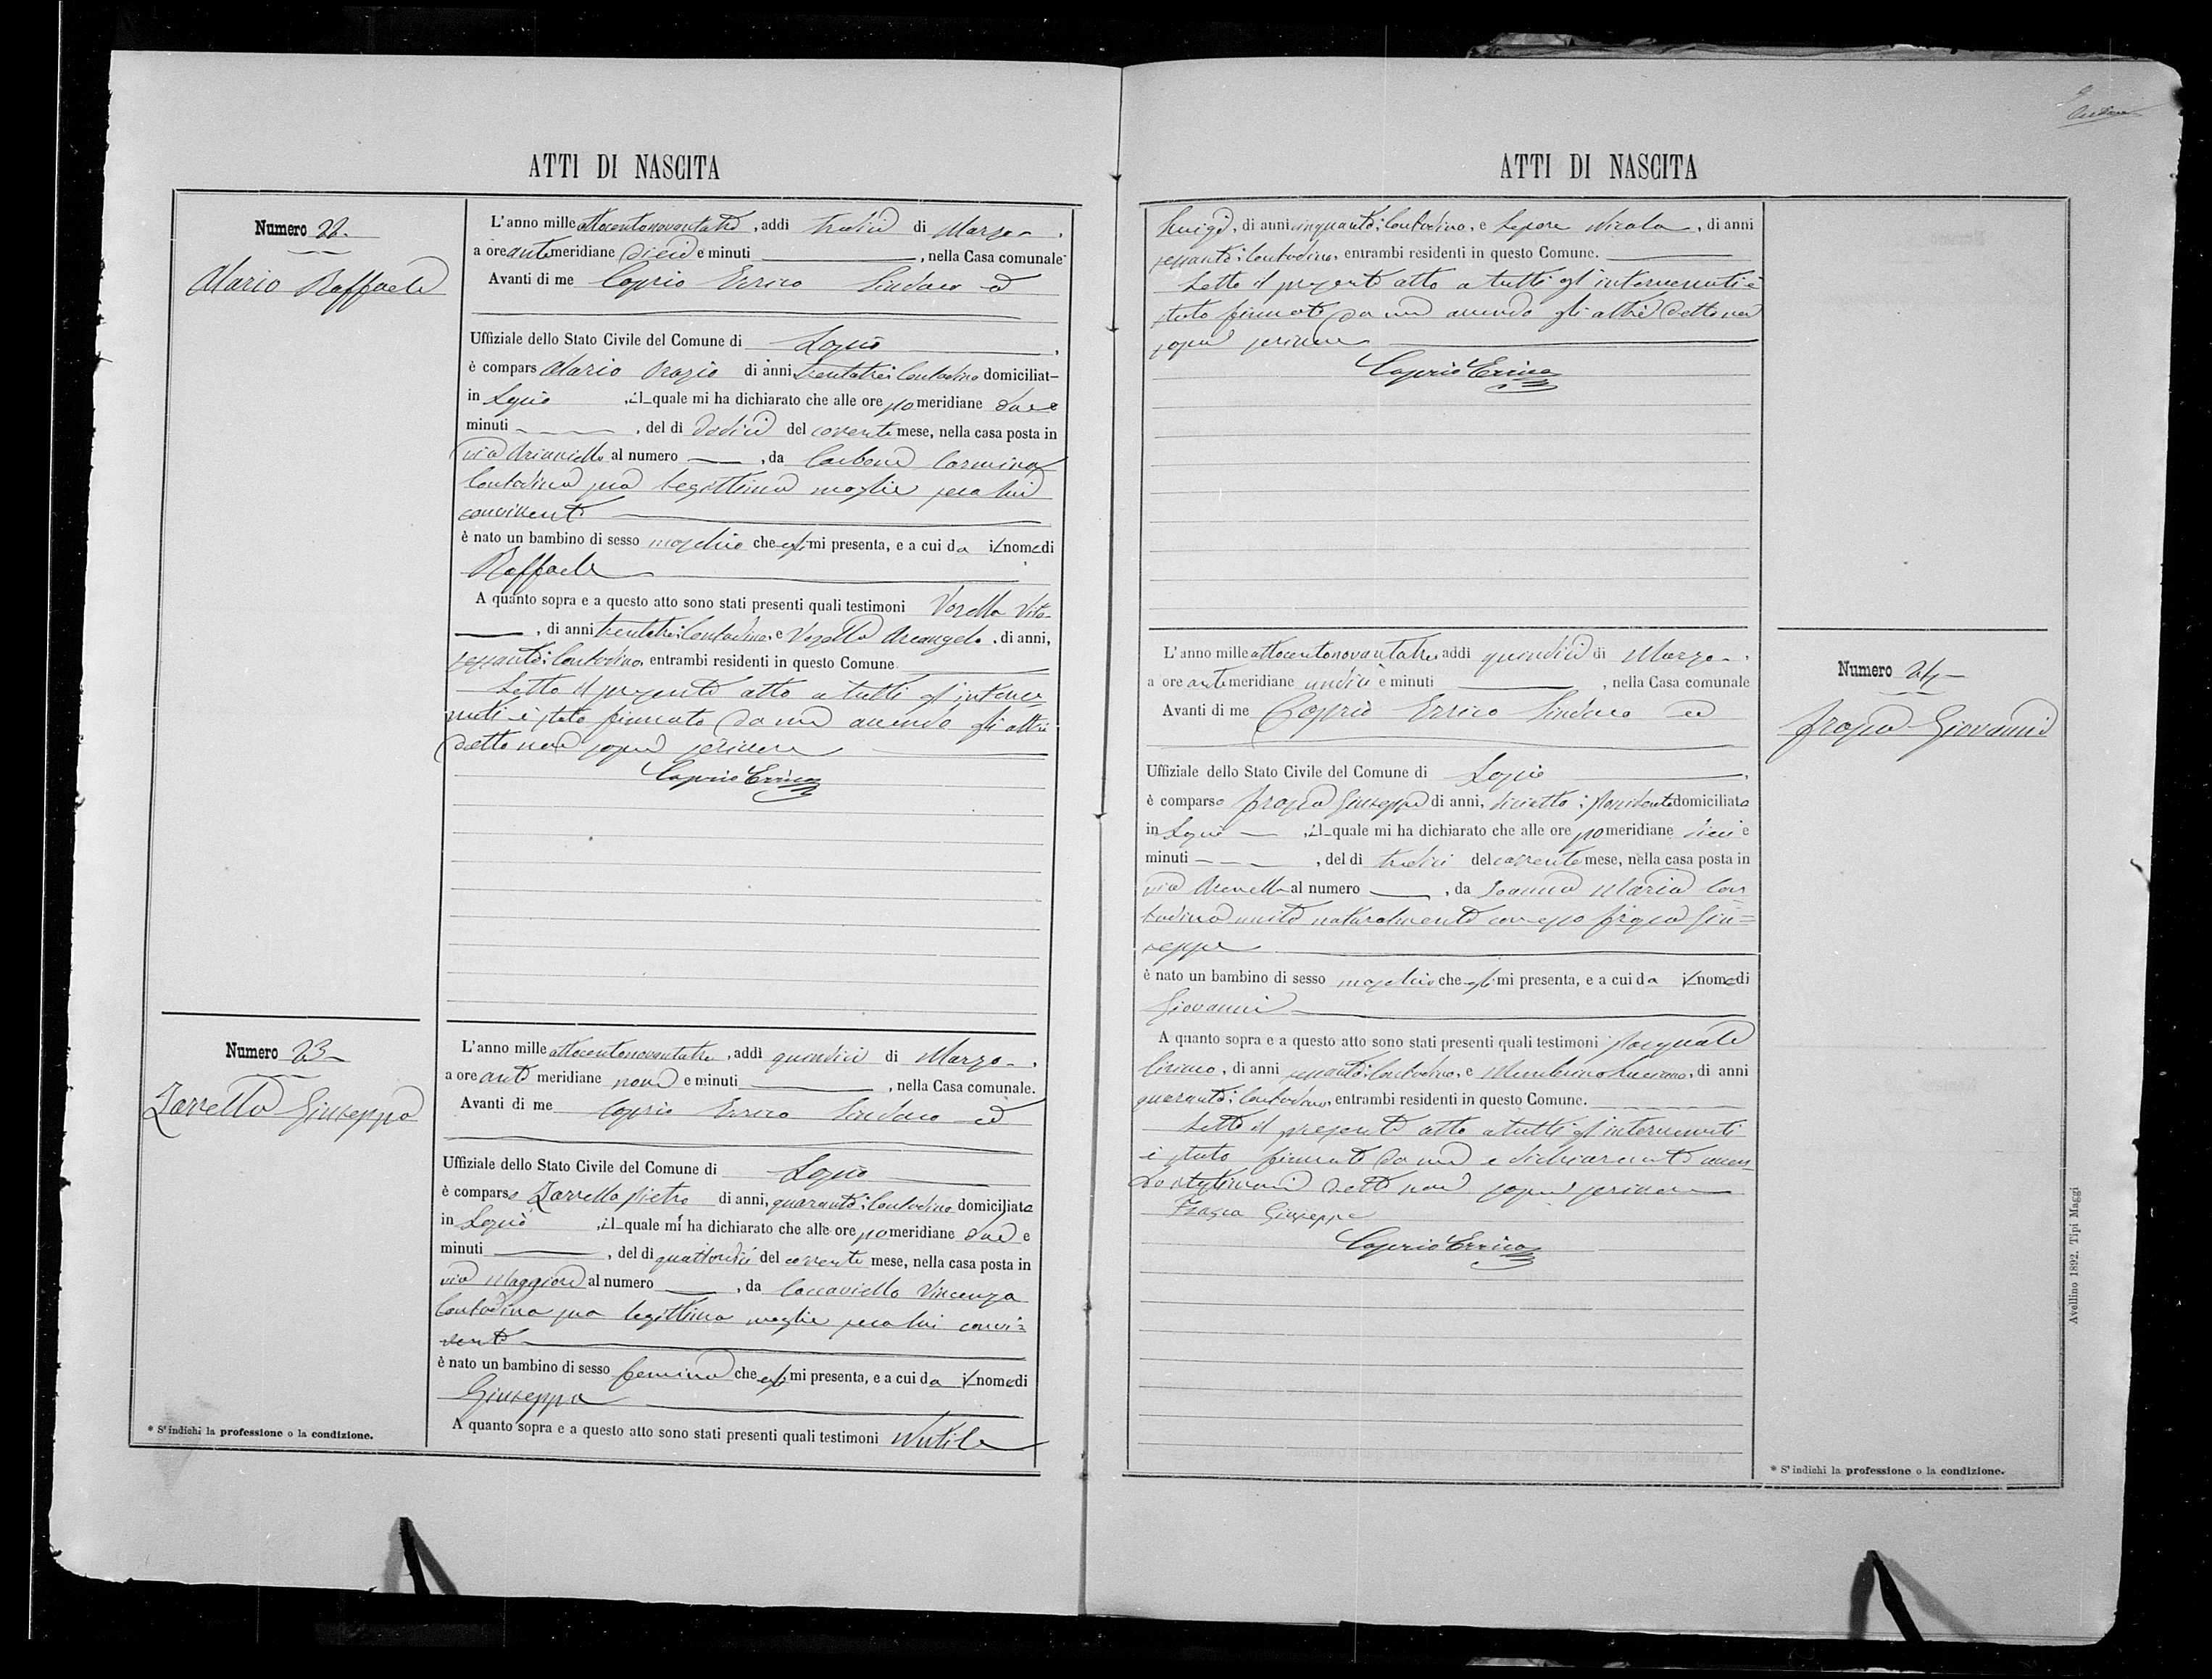 ATTI DI NASCITA
Numero 22.
Mario Raffaele
L'anno mille ottocentonovantatre, addì tredici di Marzo,
a ore antimeridiane dieci e minuti, nella Casa comunale
Avanti di me Caprio Errico Sindaco ed
Uffiziale dello Stato Civile del Comune di Lapio,
è compars Mario Orazio di anni trentatre; Contadino domiciliat
in Lapio, il quale mi ha dichiarato che alle ore pomeridiane due e
minuti, del dì dodici del corrente mese, nella casa posta in
via Arianiello al numero, da Carbone Carmina
Contadina sua legittima moglie seco lui
convivente
è nato un bambino di sesso maschio che esso mi presenta, e a cui da il nome di
Raffaele
A quanto sopra e a questo atto sono stati presenti quali testimoni Vozella Vito
, di anni trentatre; Contadino, e Vozella Arcangelo, di anni,
sessanta; Contadino, entrambi residenti in questo Comune.
Letto il presente atto a tutti gl'interve
nuti è stato firmato da me avendo gli altri
detto non saper scrivere
Caprio Errico
Numero 23
Zarrella Giuseppa
L'anno mille ottocentonovantatre, addì quindici di Marzo.
a ore anti meridiane nove e minuti, nella Casa comunale.
Avanti di me Caprio Errico Sindaco ed
Uffiziale dello Stato Civile del Comune di Lapio
è comparso Zarrella Pietro di anni, quaranta; Contadino domiciliato
in Lapio, il quale mi ha dichiarato che alle ore pomeridiane due e
minuti, del dì quattordici del corrente mese, nella casa posta in
via Maggiore al numero, da Caccaviello Vincenza
Contadina sua legittima moglie seco lui convi=
vente
è nato un bambino di sesso femina che esso mi presenta, e a cui da il nome di
Giuseppa
A quanto sopra e a questo atto sono stati presenti quali testimoni Nutile
* S'indichi la professione o la condizione.
ATTI DI NASCITA
Luigi, di anni cinquanta; Contadino, e Lepore Nicola, di anni
sessanta; Contadino, entrambi residenti in questo Comune.
Letto il presente atto a tutti gl'intervenuti è
stato firmato da me avendo gli altri detto non
saper scrivere
Caprio Errico
Numero 24
Frasca Giovanni
L'anno mille ottocentonovantatre, addì quindici di Marzo.
a ore antimeridiane undici e minuti, nella Casa comunale
Avanti di me Caprio Errico Sindaco ed
Uffiziale dello Stato Civile del Comune di Lapio,
è comparso Frasca Giuseppe di anni, diciotto; domiciliato
in Lapio, il quale mi ha dichiarato che alle ore pomeridiane dieci e
minuti, del dì tredici del corrente mese, nella casa posta in
via al numero, da Ioanna Maria Con
tadina unita naturalmente con esso Frasca Giu=
seppe
è nato un bambino di sesso maschio che esso mi presenta, e a cui da il nome di
Giovanni
A quanto sopra e a questo atto sono stati presenti quali testimoni Pasquale
Ciriaco, di anni sessanta; Contadino, e Luciano, di anni
quaranta; Contadino, entrambi residenti in questo Comune.
Letto il presente atto a tutti gl'intervenuti
è stato firmato da me e dichiarante aven
do i testimoni detto non saper scrivere
Frasca Giuseppe
Caprio Errico
* S'indichi la professione o la condizione.
Avellino 1892. Tipi Maggi